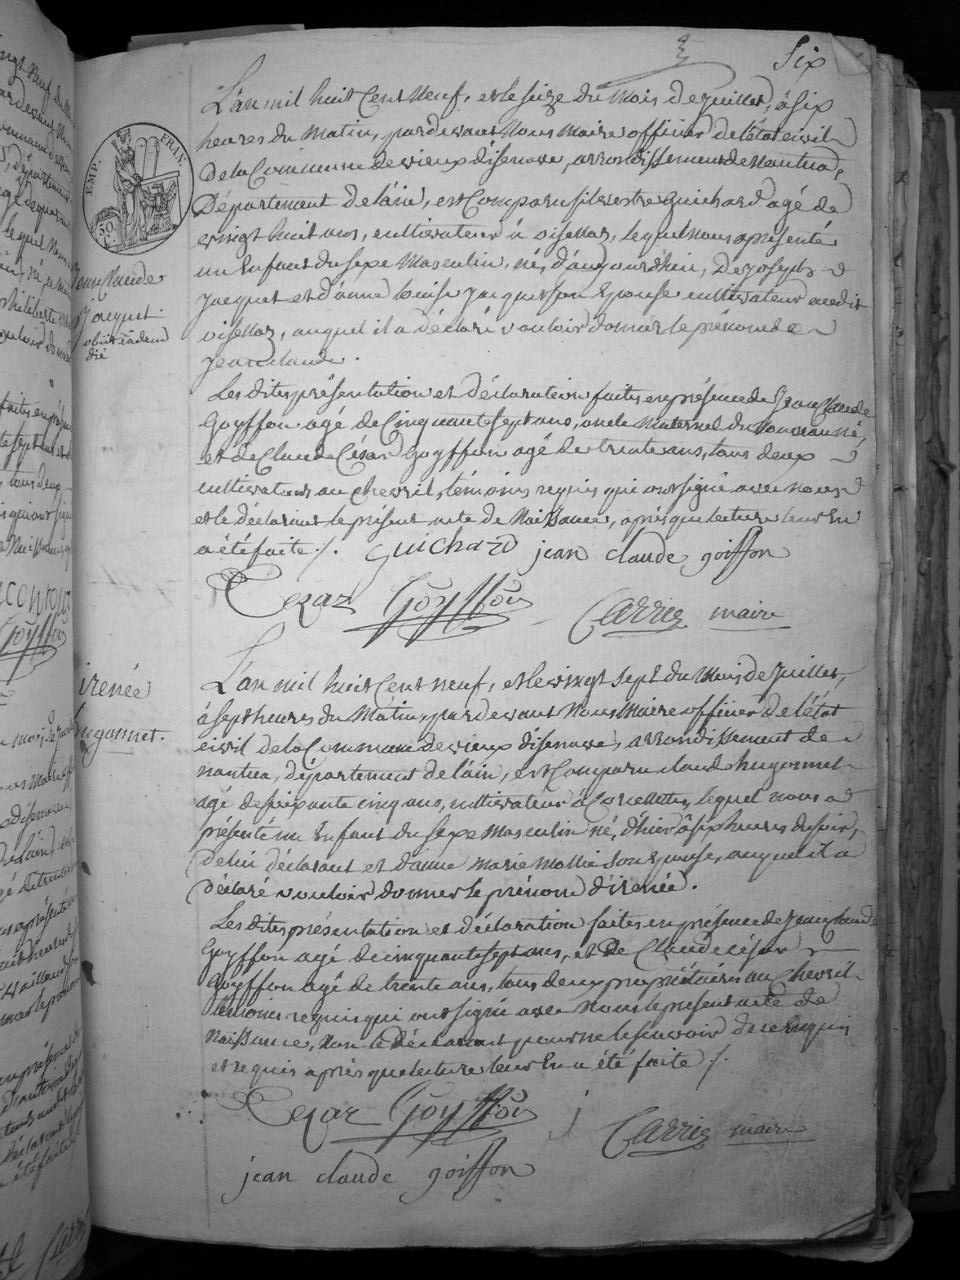 Six
EMP. FRAN.
50.
C.
L'an mil huit Cent Neuf, et le seize du Mois de juillet, à six
heures du Matin, pardevant Nous Maire officier de l'état civil
De la Commune de vieux d'isenave, arrondissement de Nantua,
Département de l'ain, est Comparu silvestre Guichard agé de
vingt huit ans, cultivateur à oisellaz, lequel nous a présenté
un Enfant du sexe Masculin, né d'aujourdhui, De joseph
jacquet et d'anne Louise jacquesson Epouse cultivateur audit
oisellaz, auquel il a déclaré vouloir donner le prénom de
jean claude.
jean Claude
jacquet
Les dites présentation et déclaration faites en présence de jean Claude
Goyffon agé de Cinquante sept ans, oncle Maternel du Nouveau né,
et de Claude César Goyffon agé de trente ans, tous deux
cultivateurs au chevril, témoins requis qui ont signé avec nous
et le déclarant le présent acte de Naissance, après que lecture leur En
a été faite ./. Guichard jean claude goiffon
Cezar Goyffon Carrier maire
irenée
hugonnet.
L'an mil huit Cent neuf, et le vingt sept du Mois de juillet,
à sept heures du Matin, pardevant Nous Maire officier de l'état
civil de la Commune de vieux d'isenave, arrondissement de
nantua, département de l'ain, est Comparu claude hugonnet
agé de soixante cinq ans, cultivateur à Corcellettes, lequel nous a
présenté un Enfant du sexe Masculin né, d'hier à six heures du soir,
De lui déclarant et d'anne Marie Mollie son Epouse, auquel il a
Déclaré vouloir donner le prénom d'irenée.
Les dites présentation et déclaration faites en présence de jean claude
Goyffon agé de cinquante sept ans, et De Claude césar
Goyffon agé de trente ans, tous deux propriétaires au Chevril
témoins requis qui ont signé avec Nous le présent acte de
Naissance, Non le Déclarant pour ne le savoir de ce Enquis
et requis après que lecture leur En a été faite ./.
Cezar Goyffon Carrier maire
jean claude goiffon